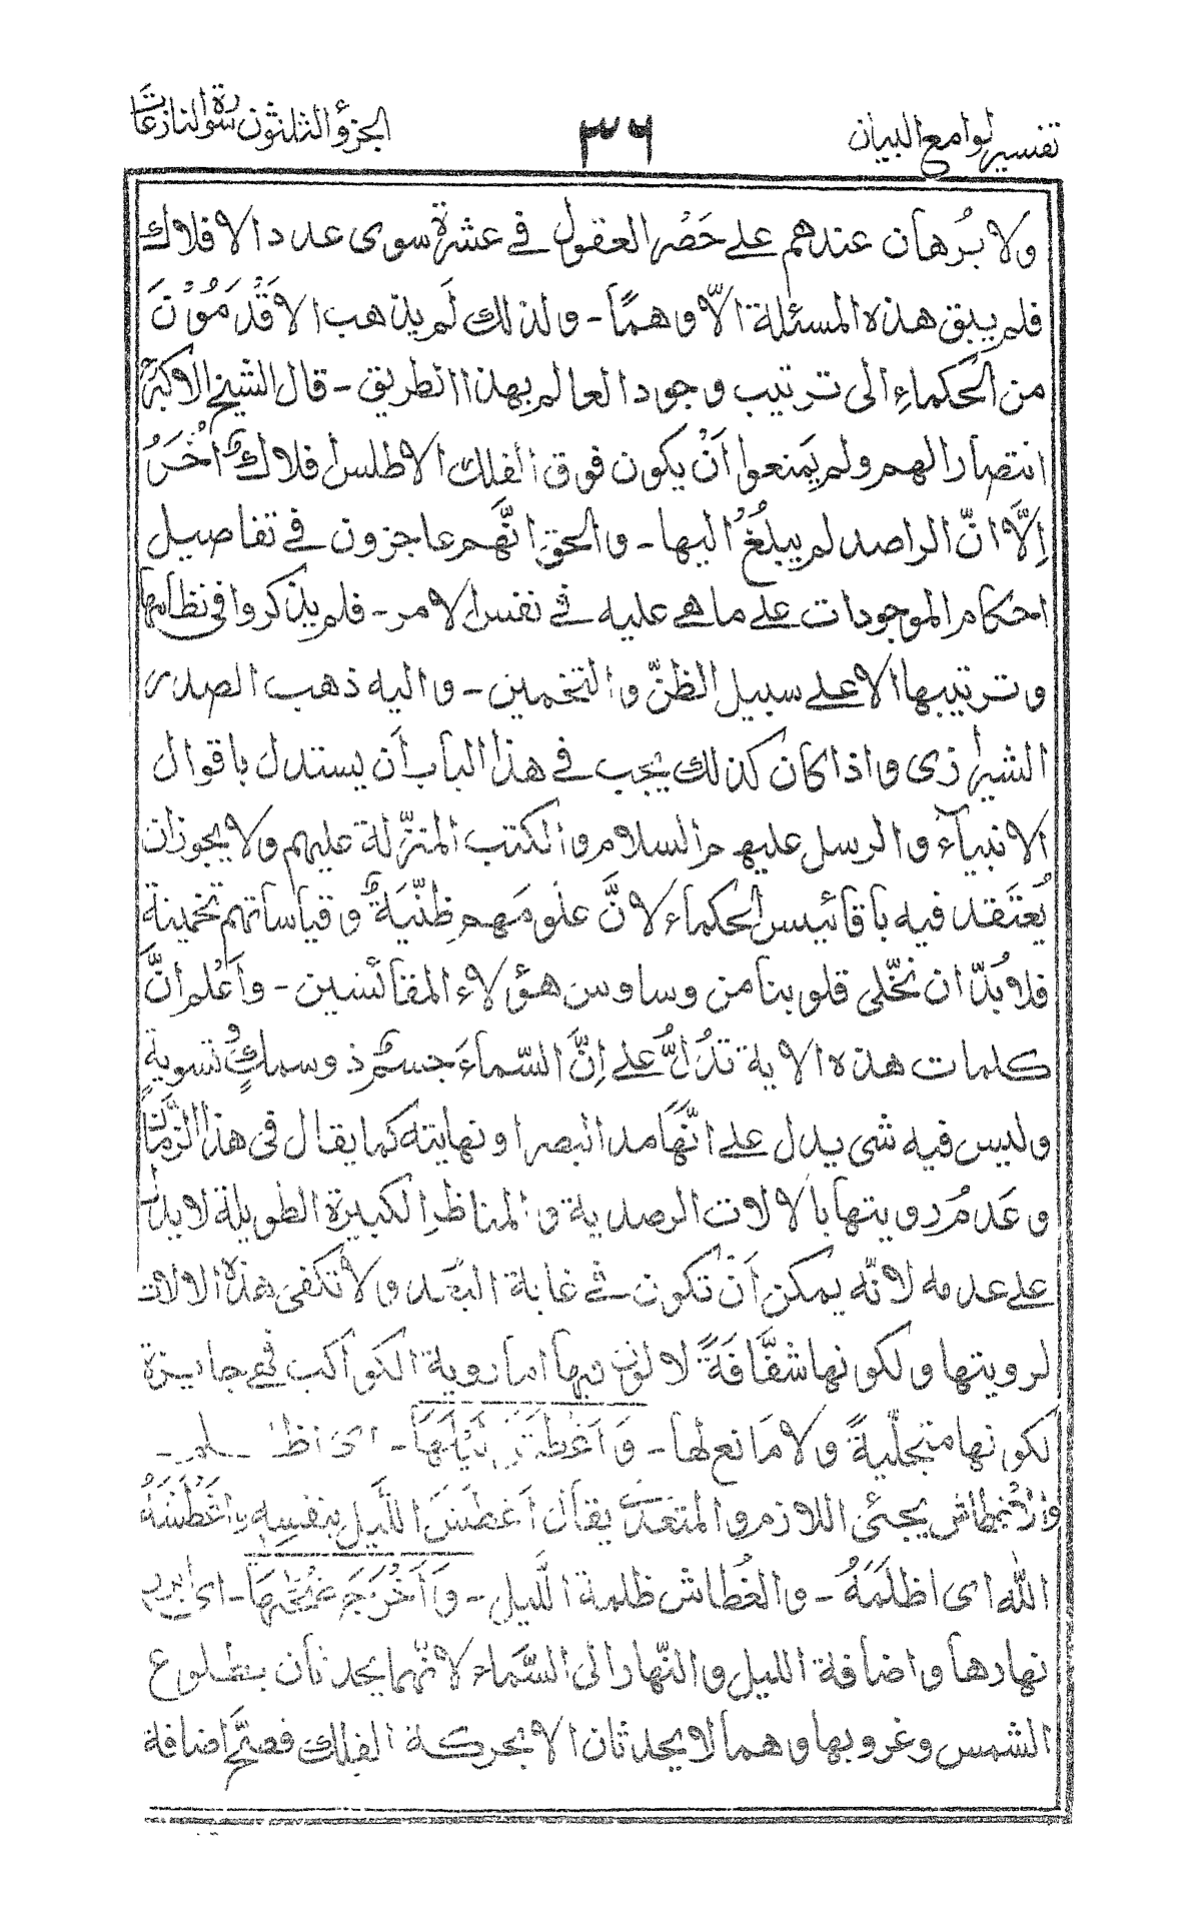 تفسير لوامع البيان ٣٦ الجزؤ الثلثون سورة والنازعات
ولا بُرهان عندهم على حَصْر العقول في عشرة سوى عدد الافلاك
فلم يبق هذه المسئلة الّا وهمًا - ولذلك لَم يذهب الاقْدَمُوْنَ
من الحكماءِ الى ترتيب وجود العالم بهذا الطريق - قال الشيخ الاكبر
انتصارا لهم ولم يَمنعوا اَنْ يكون فوق الفلك الاطلس افلاكٌ اُخَرُ
اِلَّا انّ الراصد لم يبلُغْ اليها - والحق انَّهم عاجزون في تفاصيل
احكام الموجودات على ما هي عليه في نفس الامر - فلم يذكروا في نظامها
وترتيبها الا على سبيل الظنّ والتخمين - واليه ذهب الصدر
الشيرازى واذا كان كذلك يجب في هذا الباب اَن يستدل باقوال
الانبيآء والرسل عليهم السلام والكتب المنزّلة عليهم ولا يجوز ان
يُعتَقد فيه باقائيس الحكماء لانَّ علومَهم ظنّيَةٌ وقياساتهم تخمينة
فلا بُدّ ان نخّلى قلوبنا من وساوس هؤلاء المقائسين - واَعْلم انَّ
كلمات هذه الاية تدُلُّ على اِنَّ السّماءَ جسمٌ ذو سمكٍ وتسويةٍ
وليس فيه شى يدل على انَّهَا مد البصر او نهايته كما يقال فى هذا الزّمان
وعَدمُ رويتها بالالات الرصدية والمناظر الكبيرة الطويلة لا يدل
على عدمه لانّه يمكن اَنْ تكون في غاية البُعد ولا تكفى هذه الالات
لرويتها ولكونها شفّافَةً لا لون فيها اما روية الكواكب فهى جايزة
لكونها متجلّيةً ولا مَانع لها - وَاَغْطَشَ لَيْلَهَا - اى اظلم -
والاغطاش يجئى اللازم والمتعدى يقال اَغطَشَ اللَّيل بنفسِهِ واَغْطَشَهُ
الله اى اظلَمَهُ - والغُطاش ظلمة الليل - وَاَخْرَجَ ضُحٰهَا - اى
نهارها واضافة الليل والنّهار الى السَّماء لانّهما يحدثان بطلوع
الشمس وغروبها وهما لا يحدثان الا بحركة الفلك فصَحّ اضافة